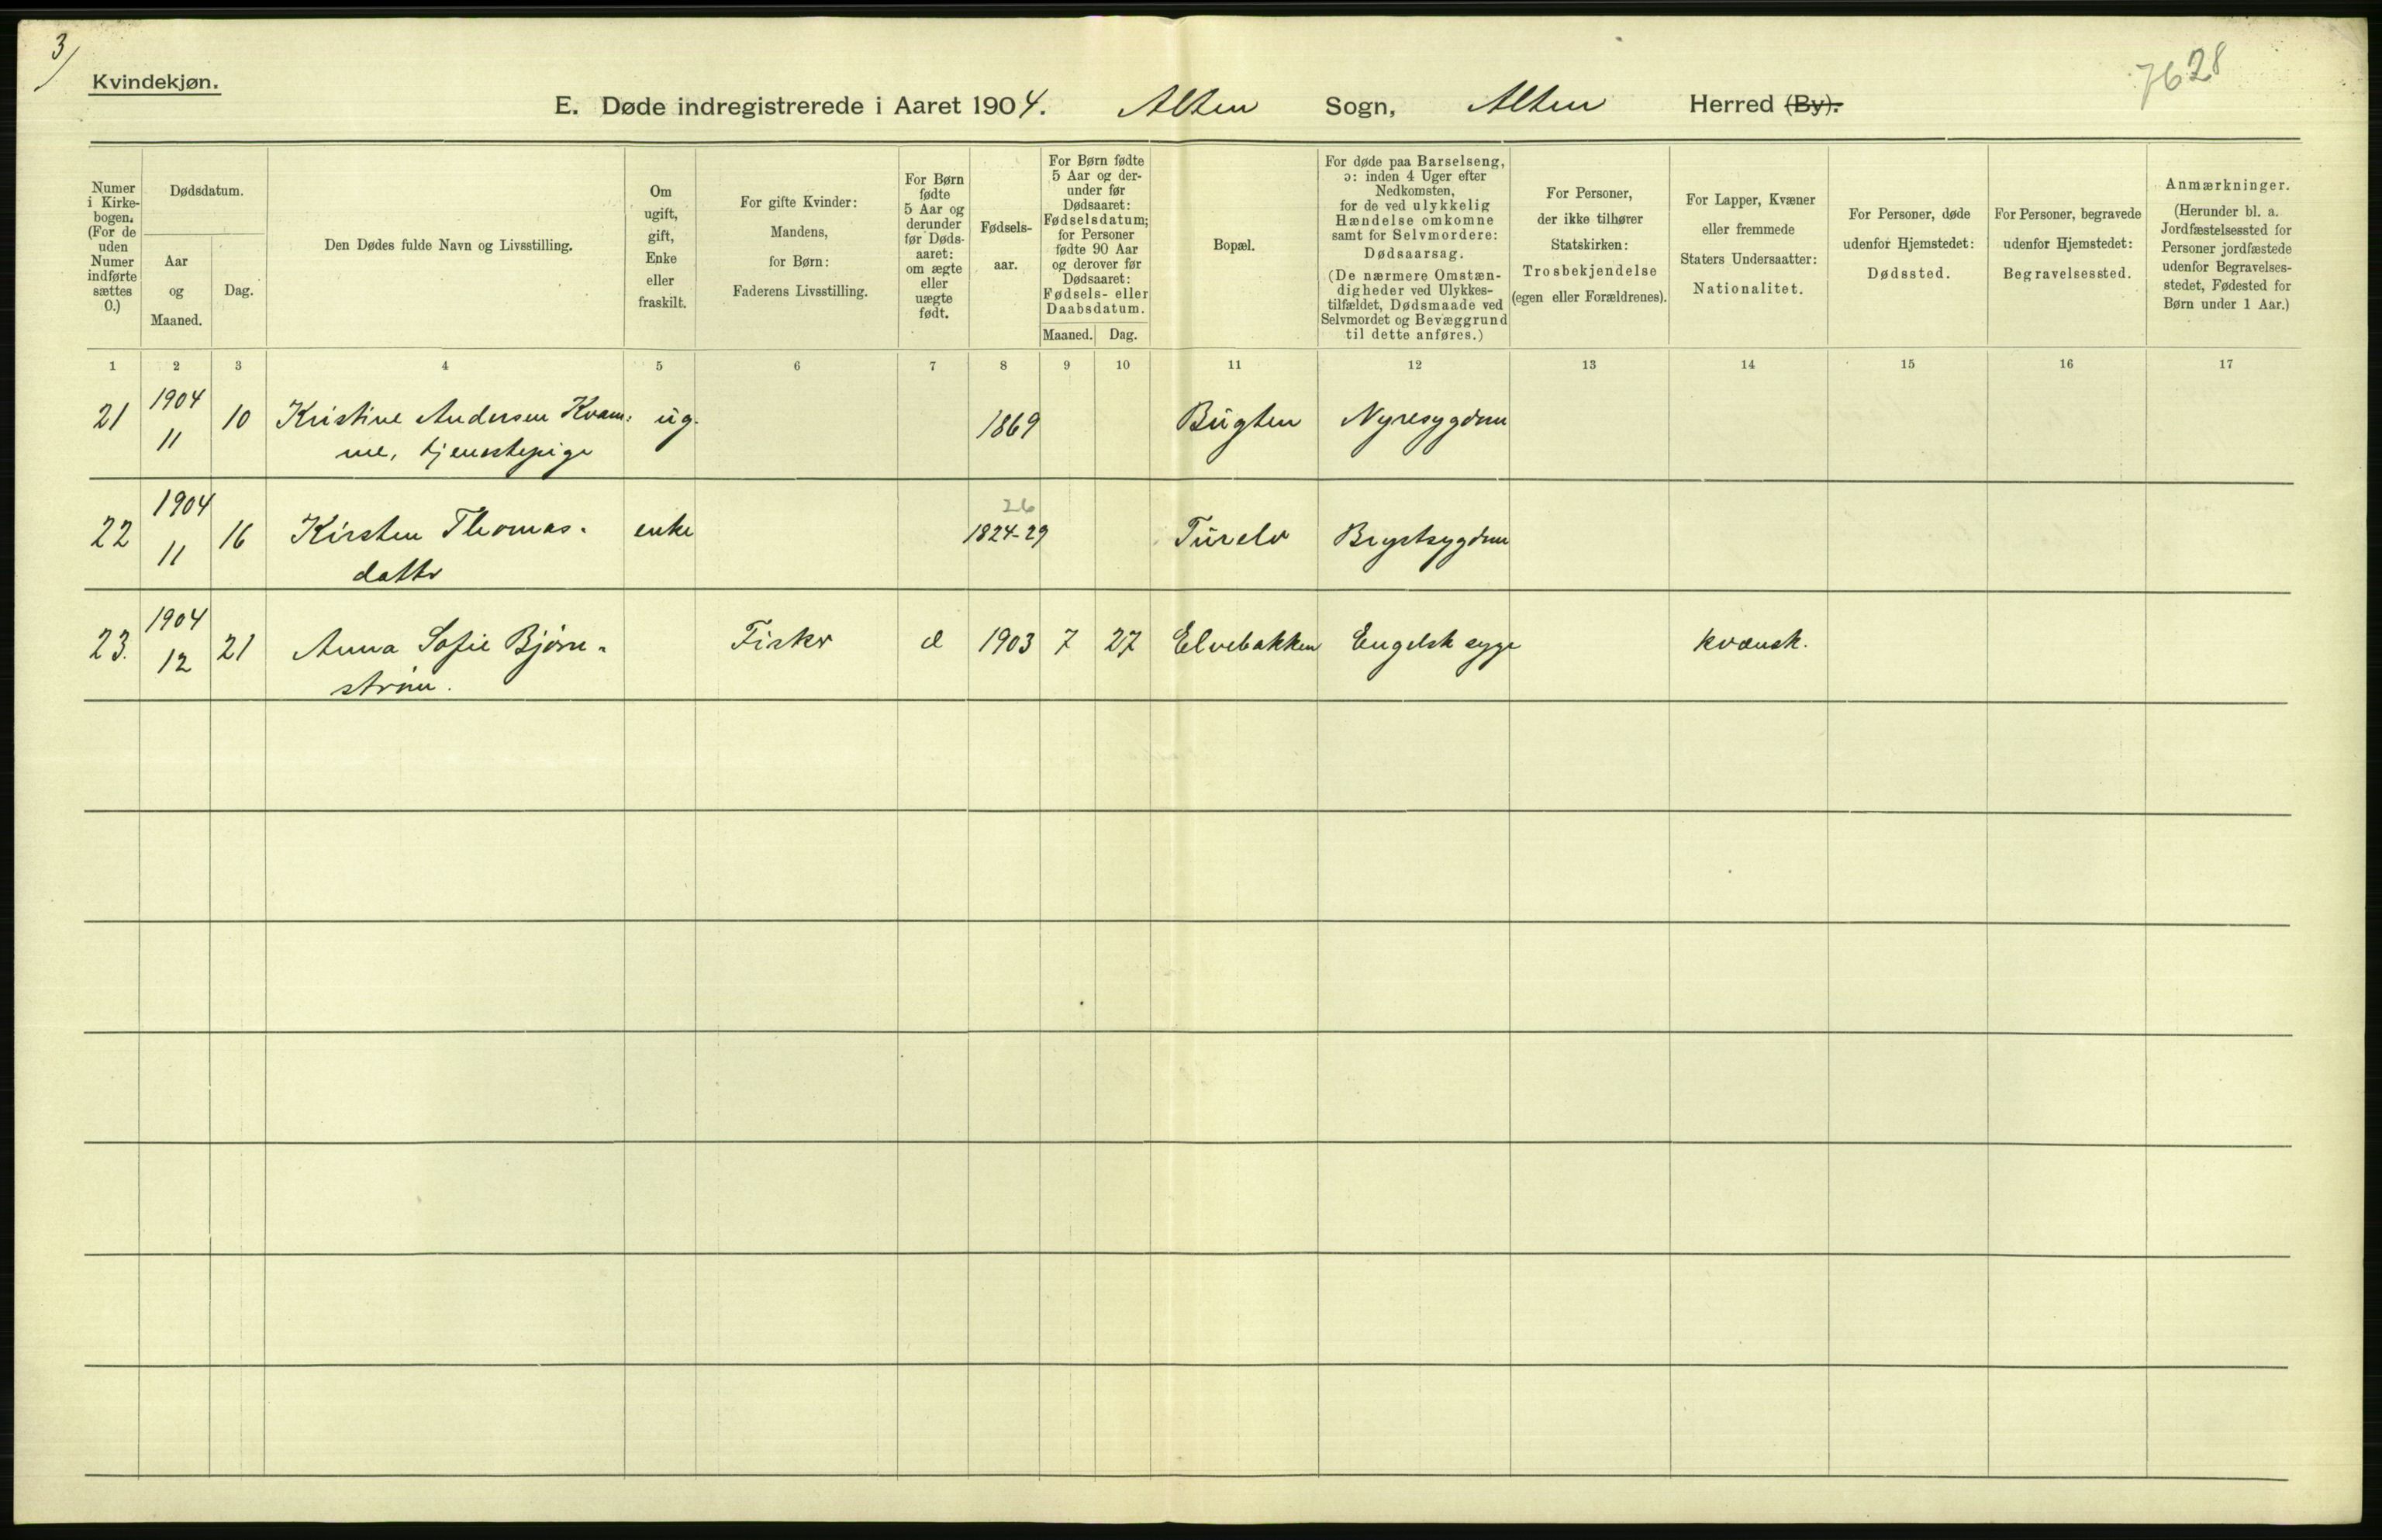 3)
Kvindekjøn.
7628
E. Døde indregistrerede i Aaret 1904. Alten Sogn, Alten Herred (By).
Numer i Kirke-bogen. (For de uden Numer indførte sættes 0.)
Dødsdatum.
Aar og Maaned.
Dag.
Den Dødes fulde Navn og Livsstilling.
Om ugift, gift, Enke eller fraskilt.
For gifte Kvinder: Mandens, for Børn: Faderens Livsstilling.
For Børn fødte 5 Aar og derunder før Døds-aaret: om ægte eller uægte født.
Fødsels-aar.
For Børn fødte 5 Aar og der-under før Dødsaaret: Fødselsdatum; for Personer fødte 90 Aar og derover før Dødsaaret: Fødsels- eller Daabsdatum.
Maaned. Dag.
Bopæl.
For døde paa Barselseng, ɔ: inden 4 Uger efter Nedkomsten, for de ved ulykkelig Hændelse omkomne samt for Selvmordere: Dødsaarsag. (De nærmere Omstæn-digheder ved Ulykkes-tilfældet, Dødsmaade ved Selvmordet og Bevæggrund til dette anføres.)
For Personer, der ikke tilhører Statskirken: Trosbekjendelse (egen eller Forældrenes).
For Lapper, Kvæner eller fremmede Staters Undersaatter: Nationalitet.
For Personer, døde udenfor Hjemstedet: Dødssted.
For Personer, begravede udenfor Hjemstedet: Begravelsessted.
Anmærkninger. (Herunder bl. a. Jordfæstelsessted for Personer jordfæstede udenfor Begravelses-stedet, Fødested for Børn under 1 Aar.)
1 2 3 4 5 6 7 8 9 10 11 12 13 14 15 16 17
21 1904 11 10 Kristine Andersen Kvam: ug. 1869 Bugten Nyresygdom
me, tjenestepige
22 1904 11 16 Kirsten Thomas- enke 26 1824-29 Turelv Brystsygdom
datter
23. 1904 12 21 Anna Sofie Bjørn- Fisker æ 1903 7 27 Elvebakken Engelsk syge kvænsk.
strøm.